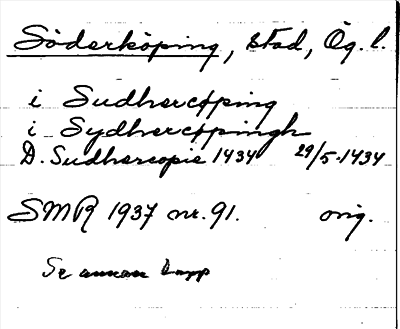 Söderköping, stad, Ög. l.
i Sudhercøping
i Sydhercøpingh
D. Sudhercopie 1434 29/5.1434
SMR 1937 nr. 91. orig.
Se annan lapp